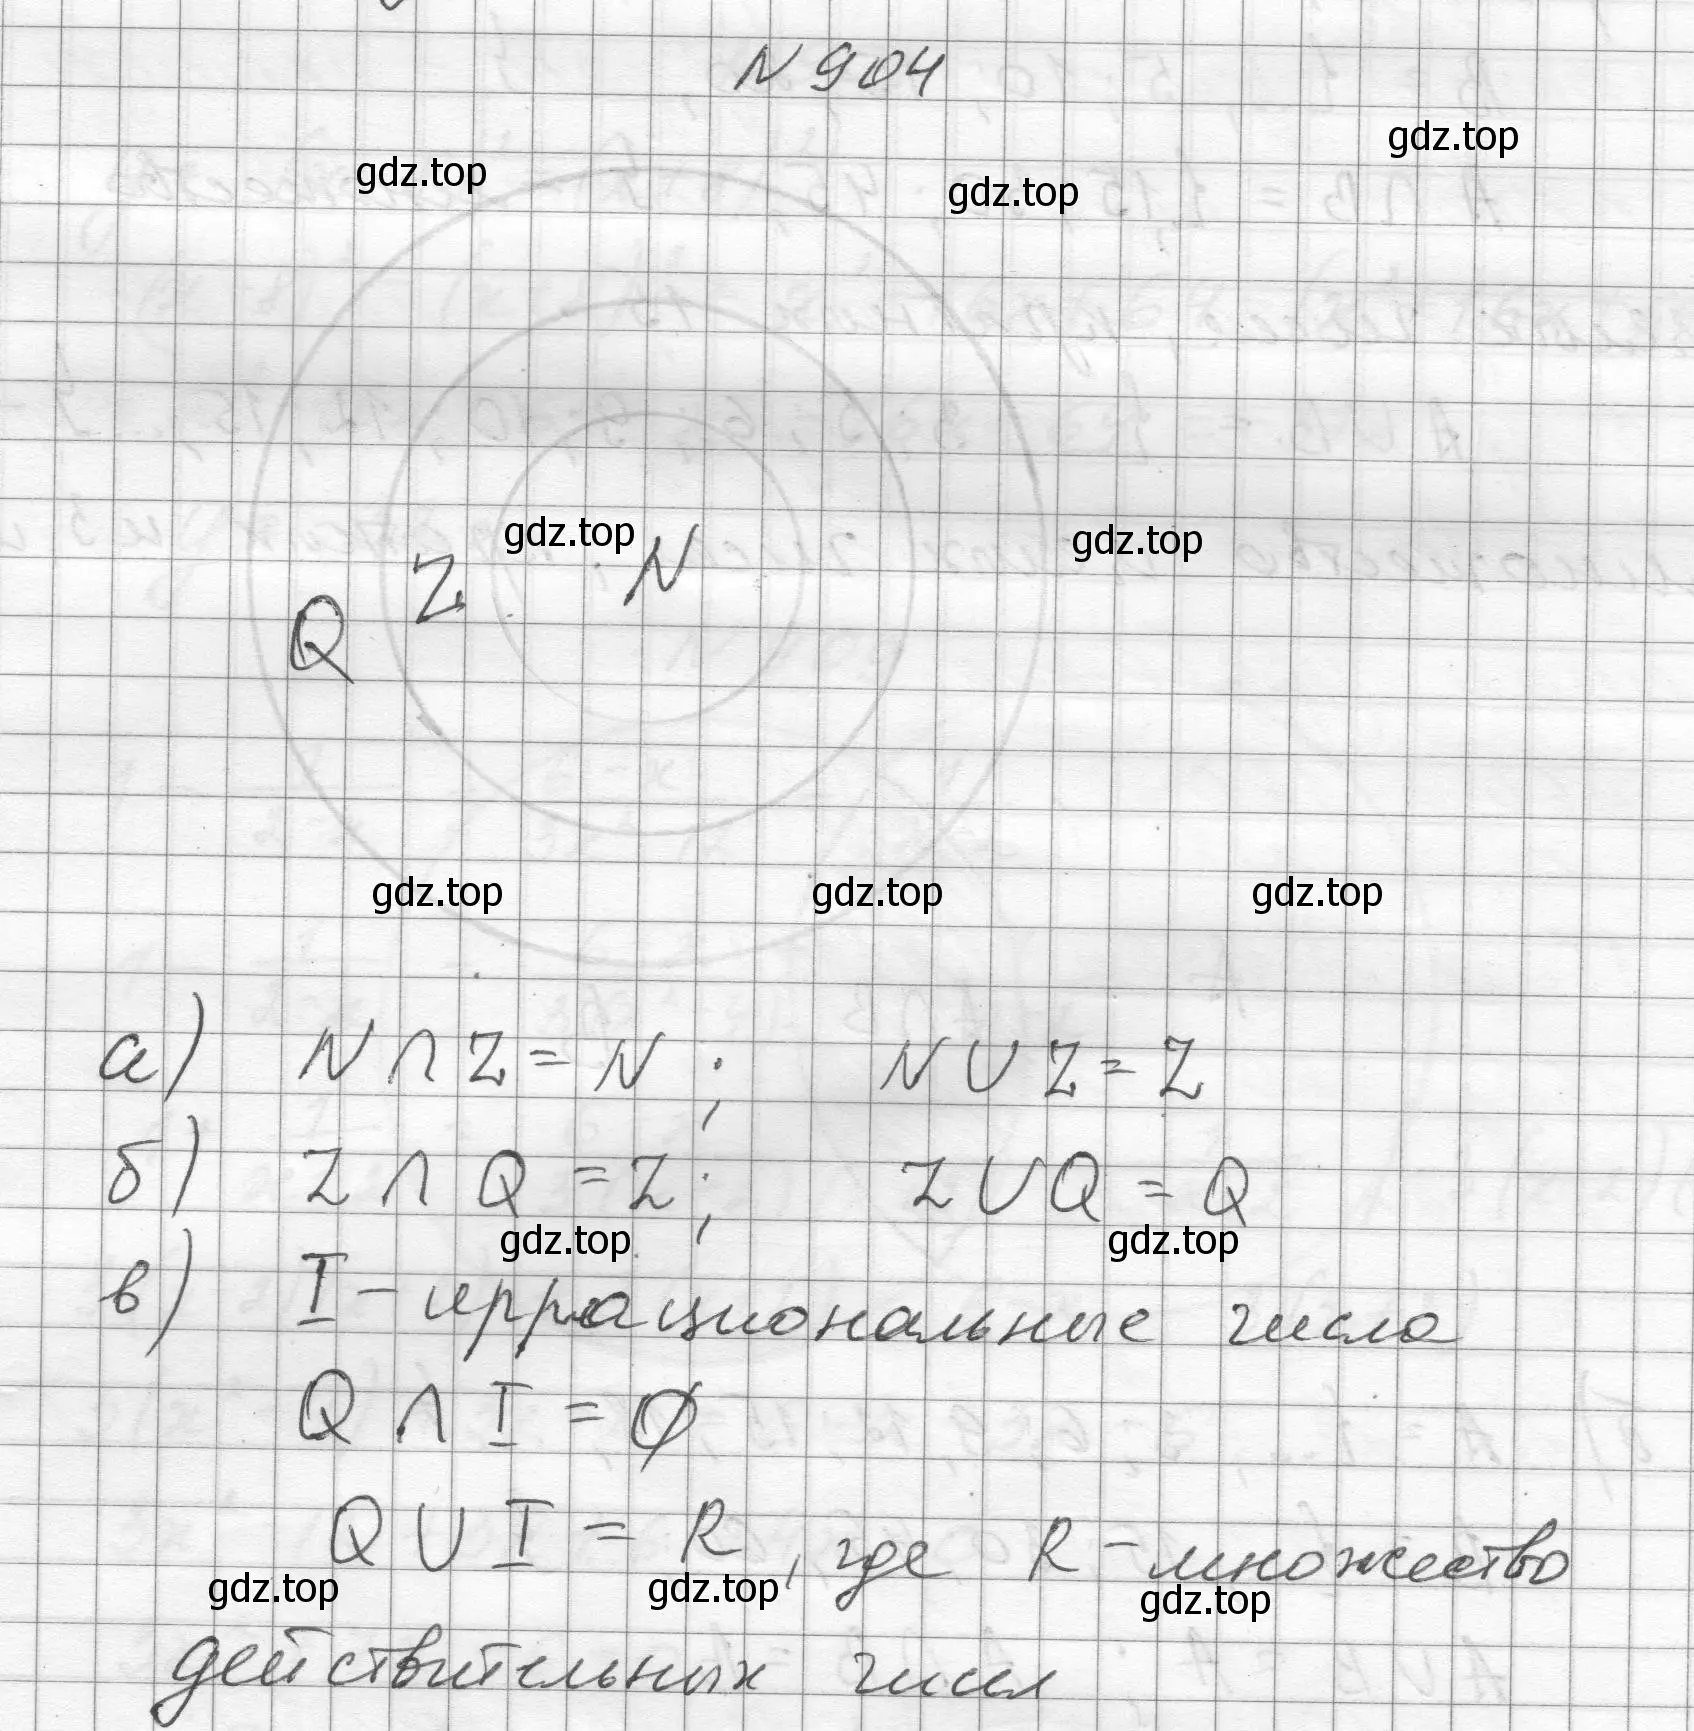 N 904
gdz.top
gdz.top
gdz.top
gdz.top
gdz.top
Q Z N
gdz.top
gdz.top
gdz.top
а) N ∩ Z = N; N ∪ Z = Z
б) Z ∩ Q = Z; Z ∪ Q = Q
gdz.top
gdz.top
в) I - иррациональные числа
Q ∩ I = ∅
Q ∪ I = R, где R - множество
gdz.top
gdz.top
gdz.top
действительных чисел